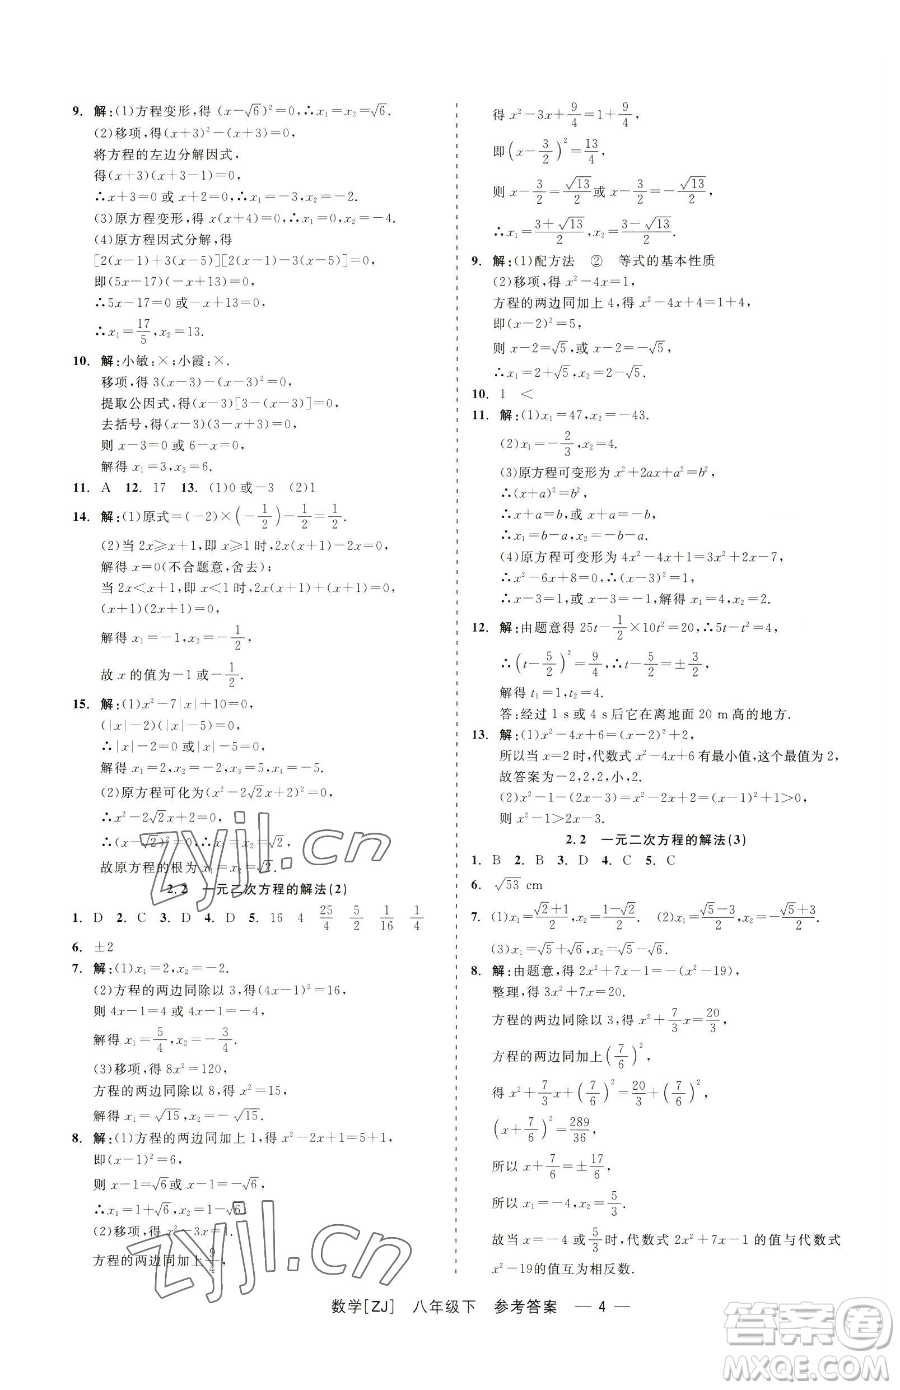 9. 解:(1)方程变形,得(x-√6)²=0,∴x₁=x₂=√6.
(2)移项,得(x+3)²-(x+3)=0,
将方程的左边分解因式,
得(x+3)(x+3-1)=0,
∴x+3=0或x+2=0,∴x₁=-3,x₂=-2.
(3)原方程变形,得x(x+4)=0,∴x₁=0,x₂=-4.
(4)原方程因式分解,得
[2(x-1)+3(x-5)][2(x-1)-3(x-5)]=0,
即(5x-17)(-x+13)=0,
∴5x-17=0或-x+13=0,
∴x₁=17/5,x₂=13.
10. 解:小敏:×;小霞:×.
移项,得3(x-3)-(x-3)²=0,
提取公因式,得(x-3)[3-(x-3)]=0,
去括号,得(x-3)(3-x+3)=0,
则x-3=0或6-x=0,
解得x₁=3,x₂=6.
11. A 12. 17 13. (1)0或-3 (2)1
14. 解:(1)原式=(-2)×(-1/2)-1/2=1/2.
(2)当2x≥x+1,即x≥1时,2x(x+1)-(x+1)=x+1,
解得x=0(不合题意,舍去);
当2x<x+1,即x<1时,
(x+1)(2x+1)=0,
解得x₁=-1,x₂=-1/2,
故x的值为-1或-1/2.
15. 解:(1)x²-7|x|+10=0,
(|x|-2)(|x|-5)=0,
∴|x|-2=0或|x|-5=0,
∴x=±2或x=±5.
(2)原方程可化为(x²-2√2x+2)²=0,
∴x²-2√2x+2=0,
∴(x-√2)²=0,
故原方程的根为x₁=x₂=√2.
2.2 一元二次方程的解法(2)
1. D 2. C 3. D 4. D 5. 16 4 25/4 5/2 1/16 1/4
6. ±2
7. 解:(1)x₁=2,x₂=-2.
(2)方程的两边同除以3,得(4x-1)²=16,
则4x-1=4或4x-1=-4,
解得x₁=5/4,x₂=-3/4.
(3)移项,得8x²=120,
方程的两边同除以8,得x²=15,
解得x₁=√15,x₂=-√15.
8. 解:(1)方程的两边同加上1,得x²-2x+1=5+1,
即(x-1)²=6,
则x-1=√6或x-1=-√6,
∴x₁=1+√6,x₂=1-√6.
(2)移项,得x²-3x=1,
方程的两边同加上9/4,
得x²-3x+9/4=1+9/4,
即(x-3/2)²=13/4,
则x-3/2=√13/2或x-3/2=-√13/2,
∴x₁=(3+√13)/2,x₂=(3-√13)/2.
9. 解:(1)配方法 ② 等式的基本性质
(2)移项,得x²-4x=1,
方程的两边同加上4,得x²-4x+4=1+4,
即(x-2)²=5,
则x-2=√5,或x-2=-√5,
∴x₁=2+√5,x₂=2-√5.
10. 1 <
11. 解:(1)x₁=47,x₂=-43.
(2)x₁=-2/3,x₂=4.
(3)原方程可变形为x²+2ax+a²=b²,
∴(x+a)²=b²,
∴x+a=b或x+a=-b,
∴x₁=b-a,x₂=-b-a.
(4)原方程可变形为4x²-4x+1=3x²+2x-7,
∴x²-6x+8=0,∴(x-3)²=1,
∴x-3=±1,解得x₁=4,x₂=2.
12. 解:由题意得25t-1/2×10t²=20,∴5t-t²=4,
∴(t-5/2)²=9/4,∴t-5/2=±3/2,
解得t₁=1,t₂=4.
答:经过1 s或4 s后它在离地面20 m高的地方.
13. 解:(1)x²-4x+6=(x-2)²+2,
所以当x=2时,代数式x²-4x+6有最小值,这个最小值为2,
故答案为-2,2,小,2.
(2)x²-1-(2x-3)=x²-2x+2=(x-1)²+1>0,
则x²-1>2x-3.
2.2 一元二次方程的解法(3)
1. B 2. B 3. D 4. C 5. C
6. √53 cm
7. (1)x₁=(√2+1)/2,x₂=(1-√2)/2. (2)x₁=(√5-3)/2,x₂=-(√5+3)/2.
(3)x₁=√5+√6,x₂=√5-√6.
8. 解:由题意,得2x²+7x-1=-(x²-19),
整理,得3x²+7x=20.
方程的两边同除以3,得x²+7/3x=20/3,
方程的两边同加上(7/6)²,
得x²+7/3x+(7/6)²=20/3+(7/6)²,
(x+7/6)²=289/36,
所以x+7/6=±17/6,
所以x₁=-4,x₂=5/3.
故当x=-4或5/3时,代数式2x²+7x-1的值与代数式
x²-19的值互为相反数.
数学[ZJ] 八年级下 参考答案 — 4 —
zyjl.cn
zyjl.cn
答案圈
MXQE.COM